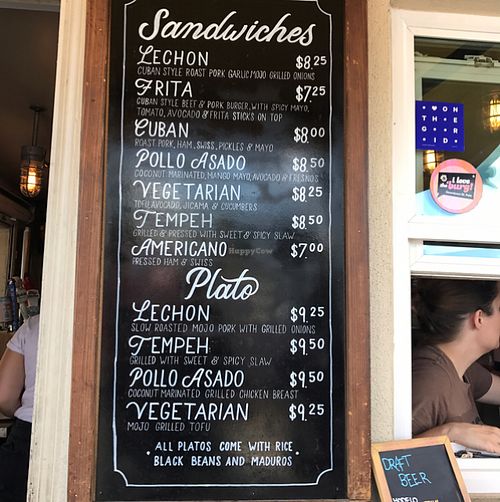 Sandwiches
LECHON $8.25
CUBAN STYLE ROAST PORK GARLIC MOJO GRILLED ONIONS
FRITA $7.25
CUBAN STYLE BEEF & PORK BURGER, WITH SPICY MAYO,
TOMATO, AVOCADO & FRITA STICKS ON TOP
CUBAN $8.00
ROAST PORK, HAM, SWISS, PICKLES & MAYO
POLLO ASADO $8.50
COCONUT MARINATED, MANGO MAYO, AVOCADO & FRESNOS
VEGETARIAN $8.25
TOFU, AVOCADO, JICAMA & CUCUMBERS
TEMPEH $8.50
GRILLED & PRESSED WITH SWEET & SPICY SLAW
AMERICANO $7.00
PRESSED HAM & SWISS
HappyCow
Plato
LECHON $9.25
SLOW ROASTED MOJO PORK WITH GRILLED ONIONS
TEMPEH $9.50
GRILLED WITH SWEET & SPICY SLAW
POLLO ASADO $9.50
COCONUT MARINATED GRILLED CHICKEN BREAST
VEGETARIAN $9.25
MOJO GRILLED TOFU
• ALL PLATOS COME WITH RICE •
BLACK BEANS AND MADUROS
ON
THE
GRID
i love
the burg!
DRAFT
BEER
MODELO